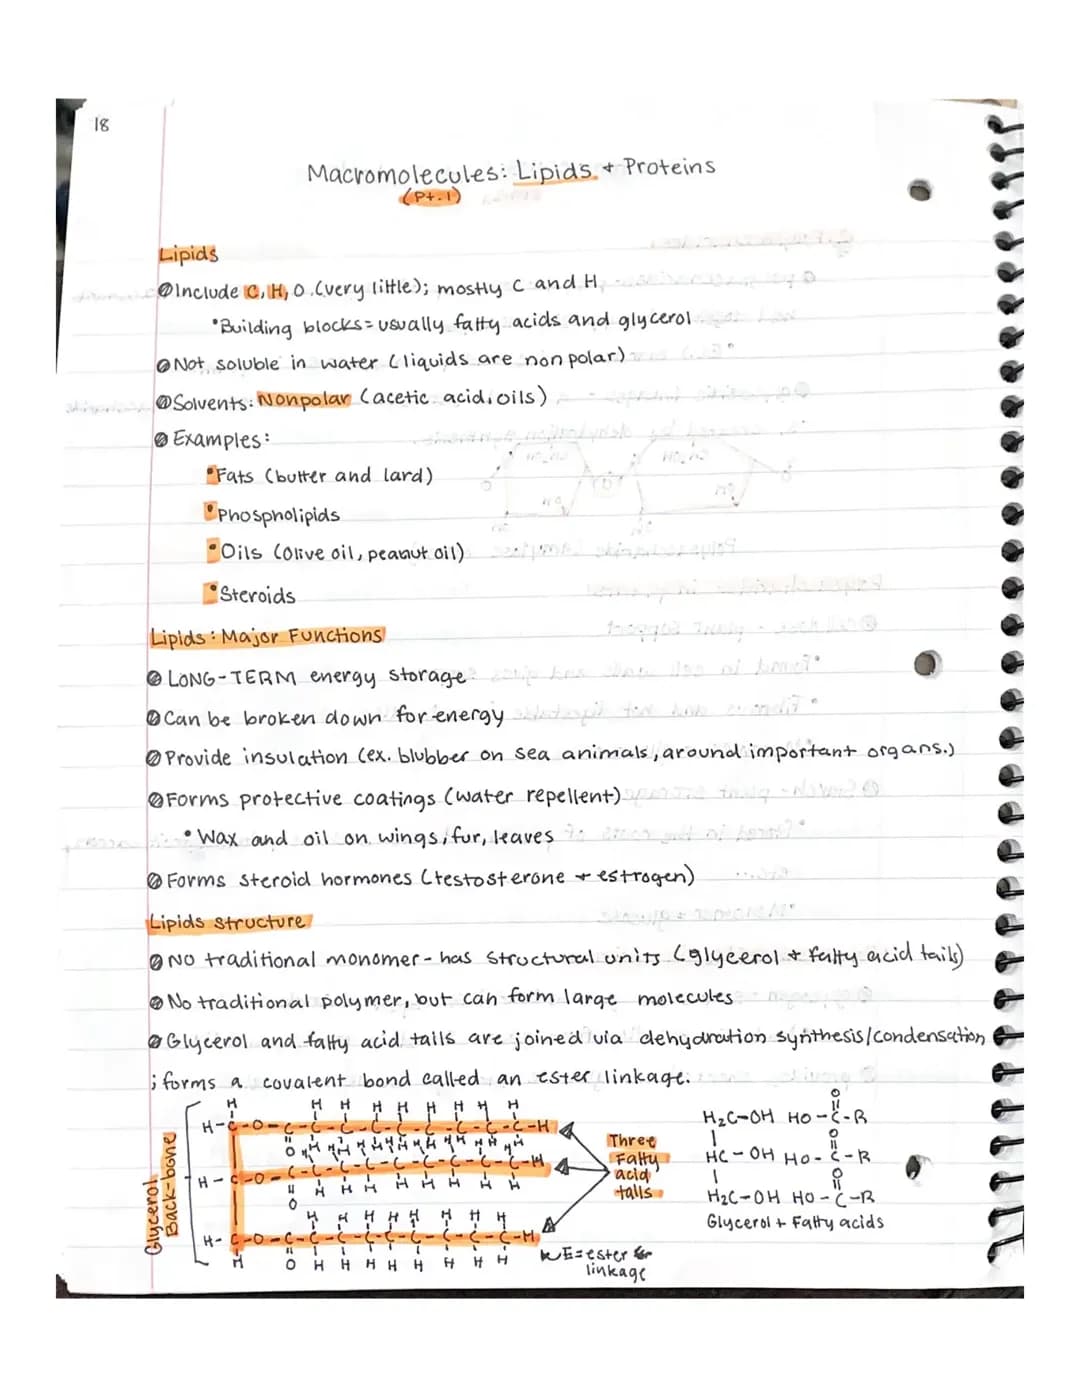 18
Macromolecules: Lipids + Proteins
(Pt. 1)
Lipids
Include C, H, O (very little); mostly C and H
•Building blocks = usually fatty acids and glycerol
Not soluble in water (liquids are non polar)
Solvents: Nonpolar (acetic acid, oils)
Examples:
•Fats (butter and lard)
•Phospholipids
•Oils (Olive oil, peanut oil)
•Steroids
Lipids: Major Functions
LONG-TERM energy storage
Can be broken down for energy
Provide insulation (ex. blubber on sea animals, around important organs.)
Forms protective coatings (water repellent)
•Wax and oil on wings, fur, leaves
Forms steroid hormones (testosterone + estrogen)
Lipids structure
No traditional monomer - has structural units (glycerol + fatty acid tails)
No traditional polymer, but can form large molecules
Glycerol and fatty acid tails are joined via dehydration synthesis/condensation
; forms a covalent bond called an ester linkage.
Glycerol
Back-bone
H H H H H H H H H
H-C-O-C-C-C-C-C-C-C-C-C-H
H-C-O-C-C-C-C-C-C-C-C-C-H
H-C-O-C-C-C-C-C-C-C-C-C-H
H O H H H H H H H H
Three
Fatty
acid
tails
E = ester
linkage
O
H₂C-OH HO-C-R
O
HC-OH HO-C-R
O
H₂C-OH HO-C-R
Glycerol + Fatty acids